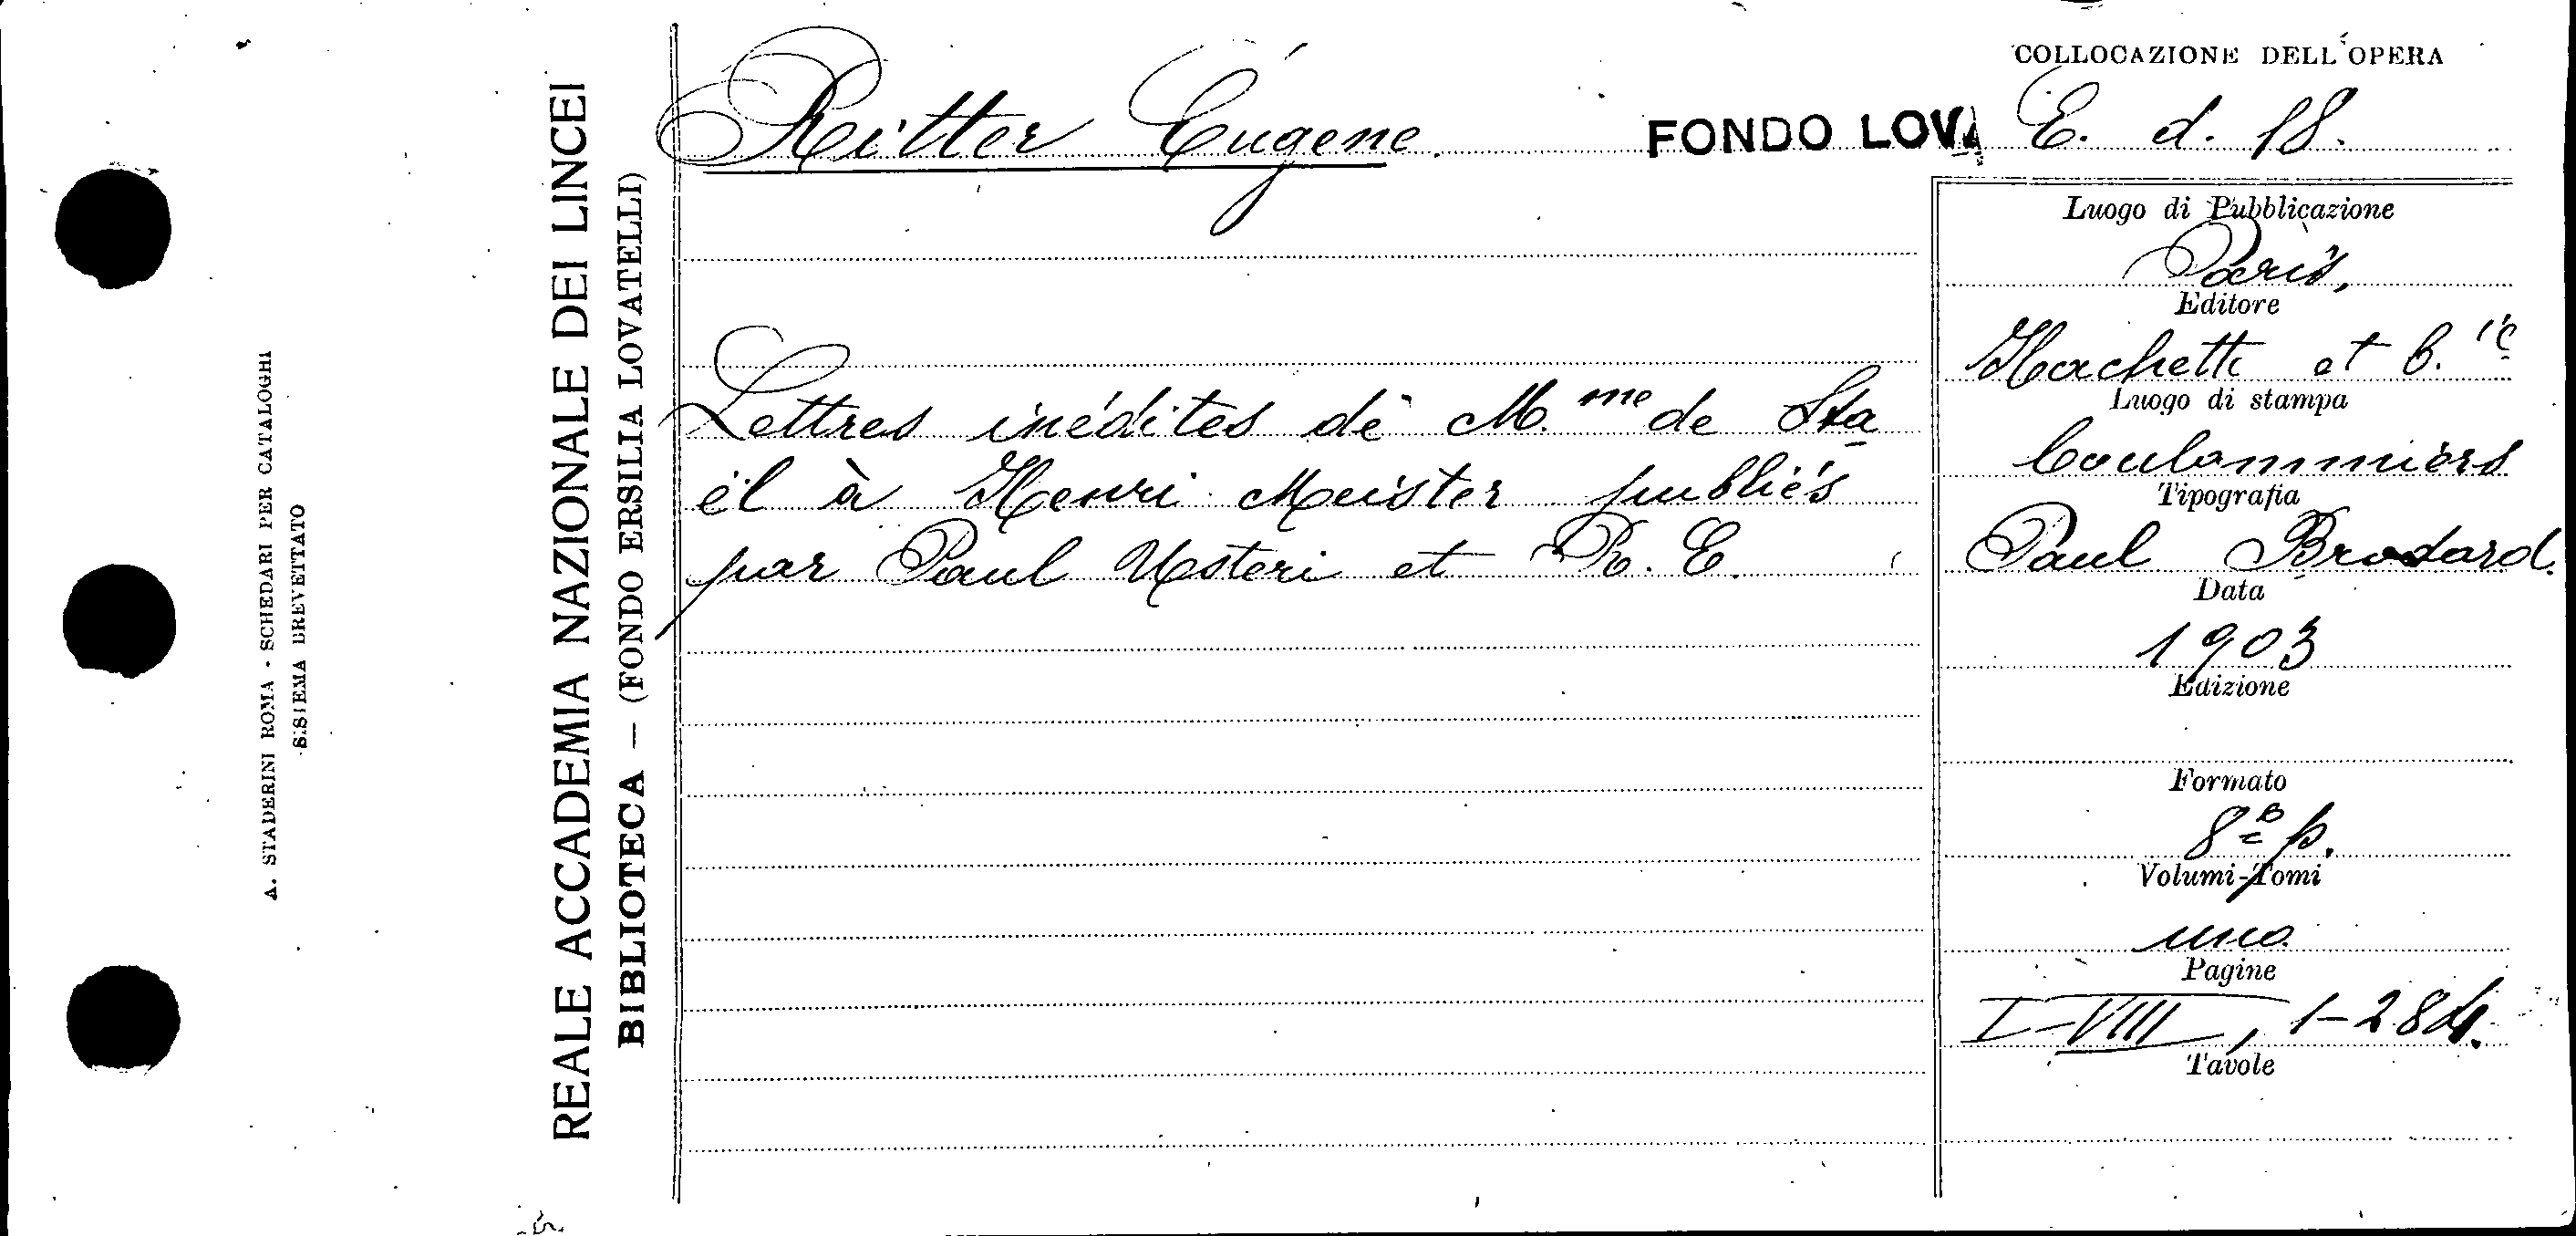 A. STADERINI ROMA - SCHEDARI PER CATALOGHI
SISTEMA BREVETTATO
REALE ACCADEMIA NAZIONALE DEI LINCEI
BIBLIOTECA — (FONDO ERSILIA LOVATELLI)
COLLOCAZIONE DELL'OPERA
Ritter Eugéne. FONDO LOVA E. d. 18.
Lettres inédites de M.me de Sta
ël à Henri Meister publiés
par Paul Usteri et R. E.
Luogo di Pubblicazione
Paris,
Editore
Hachette et C.ie
Luogo di stampa
Coulommiers
Tipografia
Paul Brodard.
Data
1903
Edizione
Formato
8º p.
Volumi-Tomi
uno
Pagine
I-VIII, 1-284.
Tavole